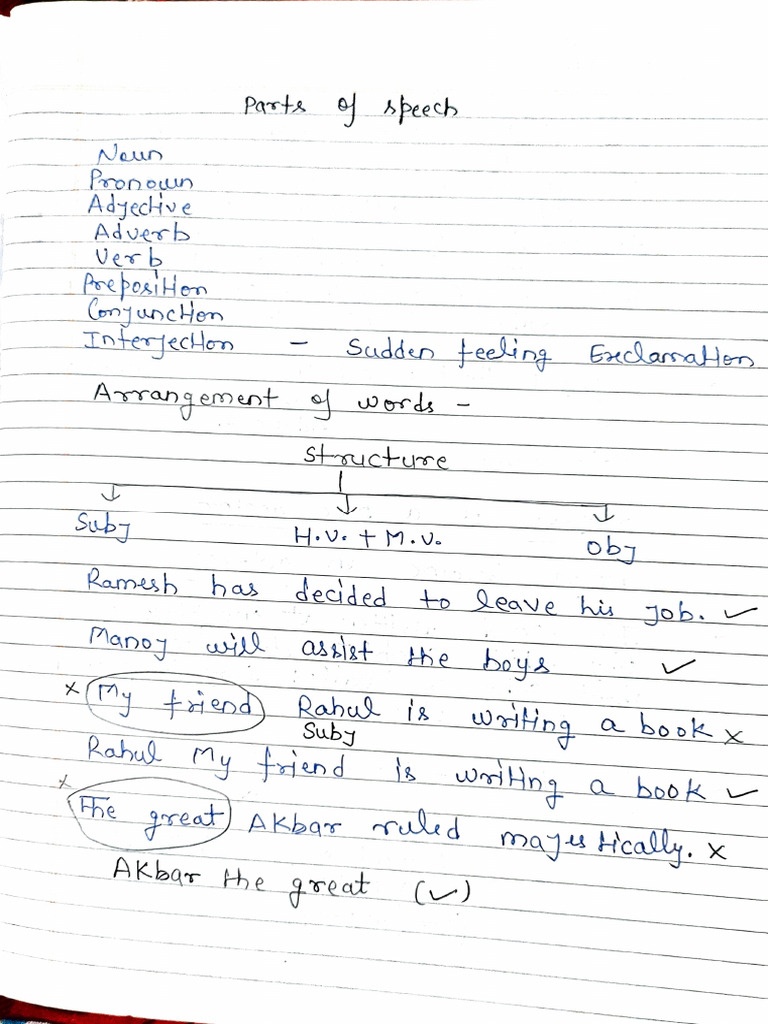 Parts of speech
Noun
Pronoun
Adjective
Adverb
Verb
Preposition
Conjunction
Interjection - Sudden feeling Exclamation
Arrangement of words -
Structure
Subj H.V. + M.V. Obj
Ramesh has decided to leave his job. ✓
Manoj will assist the boys ✓
x My friend Rahul is writing a book x
Subj
Rahul My friend is writing a book ✓
x The great Akbar ruled majestically. x
Akbar the great (✓)